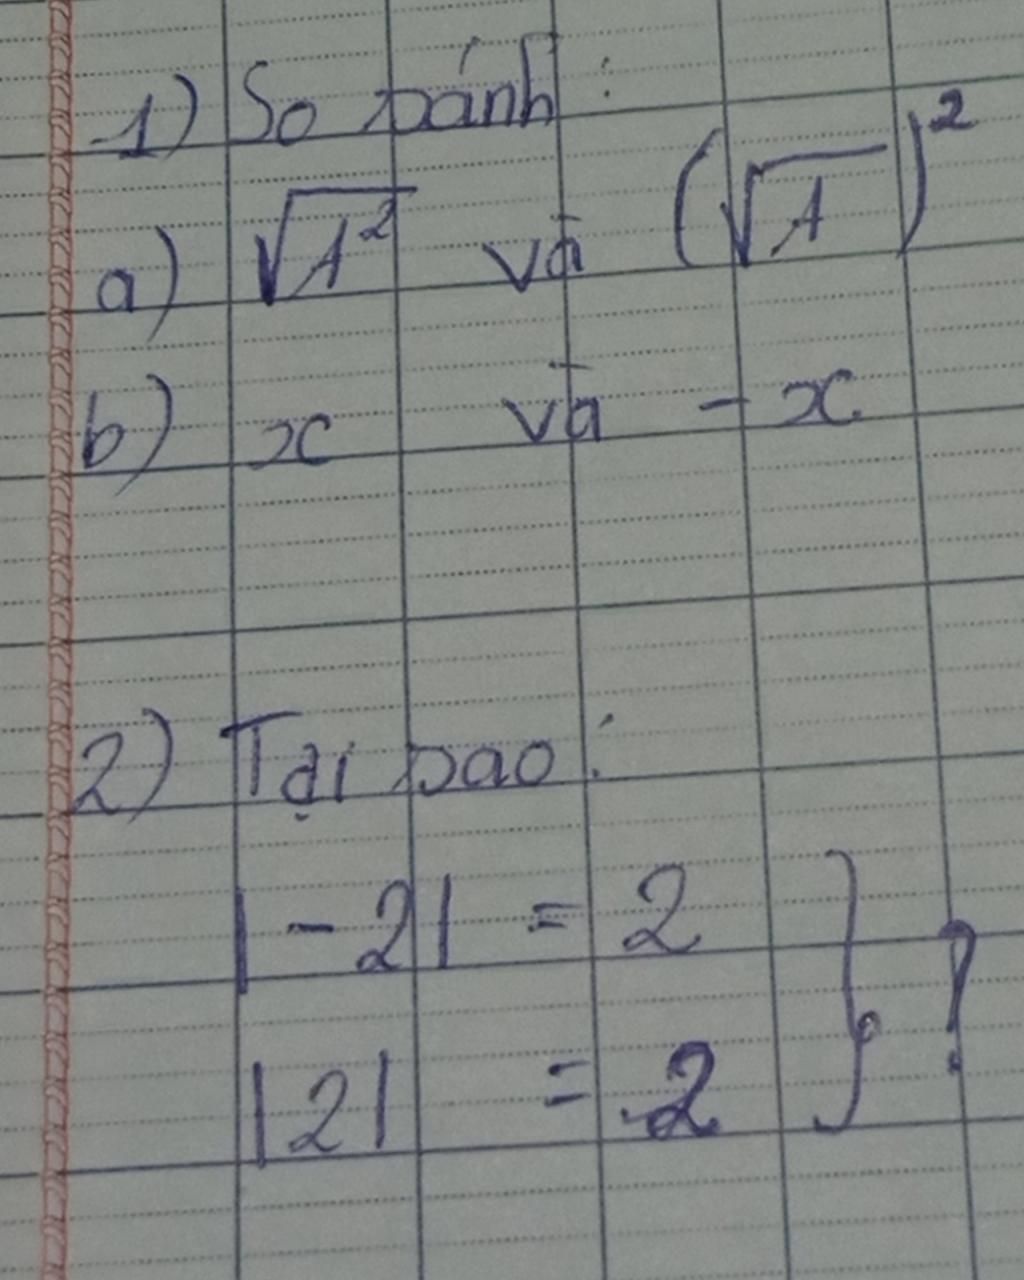 1) So sánh :
a) √A² và (√A)²
b) x và - x
2) Tại sao :
|-2| = 2
|2| = 2 } ?